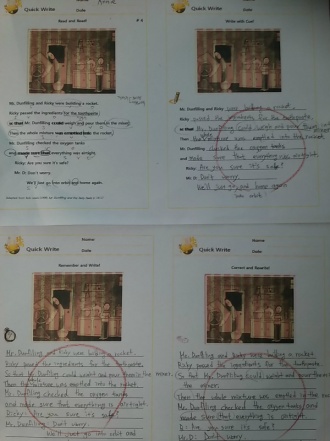 Quick Write
Name
Date
Read and Read!
# 4
Mr. Dunfilling and Ricky were building a rocket.
Ricky passed the ingredients for the toothpaste
so that Mr. Dunfilling could weigh and pour them in the mixer.
Then the whole mixture was emptied into the rocket.
Mr. Dunfilling checked the oxygen tanks
and made sure that everything was airtight.
Ricky: Are you sure it's safe?
Mr. D: Don't worry.
We'll just go into orbit and home again.
Quick Write
Name
Date
Write with Cue!
Mr. Dunfilling and Ricky were building a rocket.
Ricky passed the ingredients for the toothpaste.
so that Mr. Dunfilling could
Then the whole mixture was emptied into the rocket
Mr. Dunfilling checked the oxygen tanks
and made sure that everything was airtight.
Ricky: Are you sure it's safe?
Mr. D: Don't worry.
We'll just go home again
into orbit
Quick Write
Name
Date
Remember and Write!
Mr. Dunfilling and Ricky were building a rocket.
Ricky passed the ingredients for the toothpaste.
So that Mr. Dunfilling could
Then the mixture was emptied into the rocket.
Mr. Dunfilling checked the oxygen tanks
and made sure that everything is airtight.
Ricky: Are you sure it's safe
Mr. Dunfilling: Don't worry.
We'll just go into orbit and
Quick Write
Name
Date
Correct and Rewrite!
Mr. Dunfilling and Ricky were building a rocket.
Ricky passed the ingredients for the toothpaste.
So that Mr. Dunfilling could
the mixer.
Then the whole mixture was emptied in the
Mr. Dunfilling checked the oxygen tanks and
made sure that everything is airtight.
you sure it's safe?
Mr. D: Don't worry.